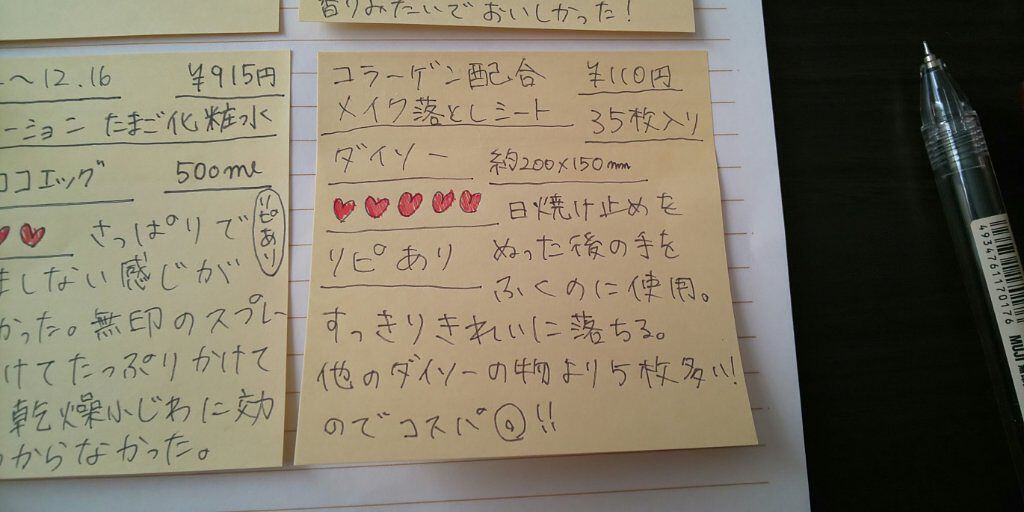 香りみたいでおいしかった!
〜12.16 ¥915円
ーション たまご化粧水
ココエッグ 500ml
さっぱりで リピあり
ましない感じが
かった。無印のスプレー
けてたっぷりかけて
乾燥小じわに効
からなかった。
コラーゲン配合 ¥110円
メイク落としシート 35枚入り
ダイソー 約200×150mm
日焼け止めを
リピあり ぬった後の手を
ふくのに使用。
すっきりきれいに落ちる。
他のダイソーの物より5枚多い!
のでコスパ◎!!
4934761170176
MUJI